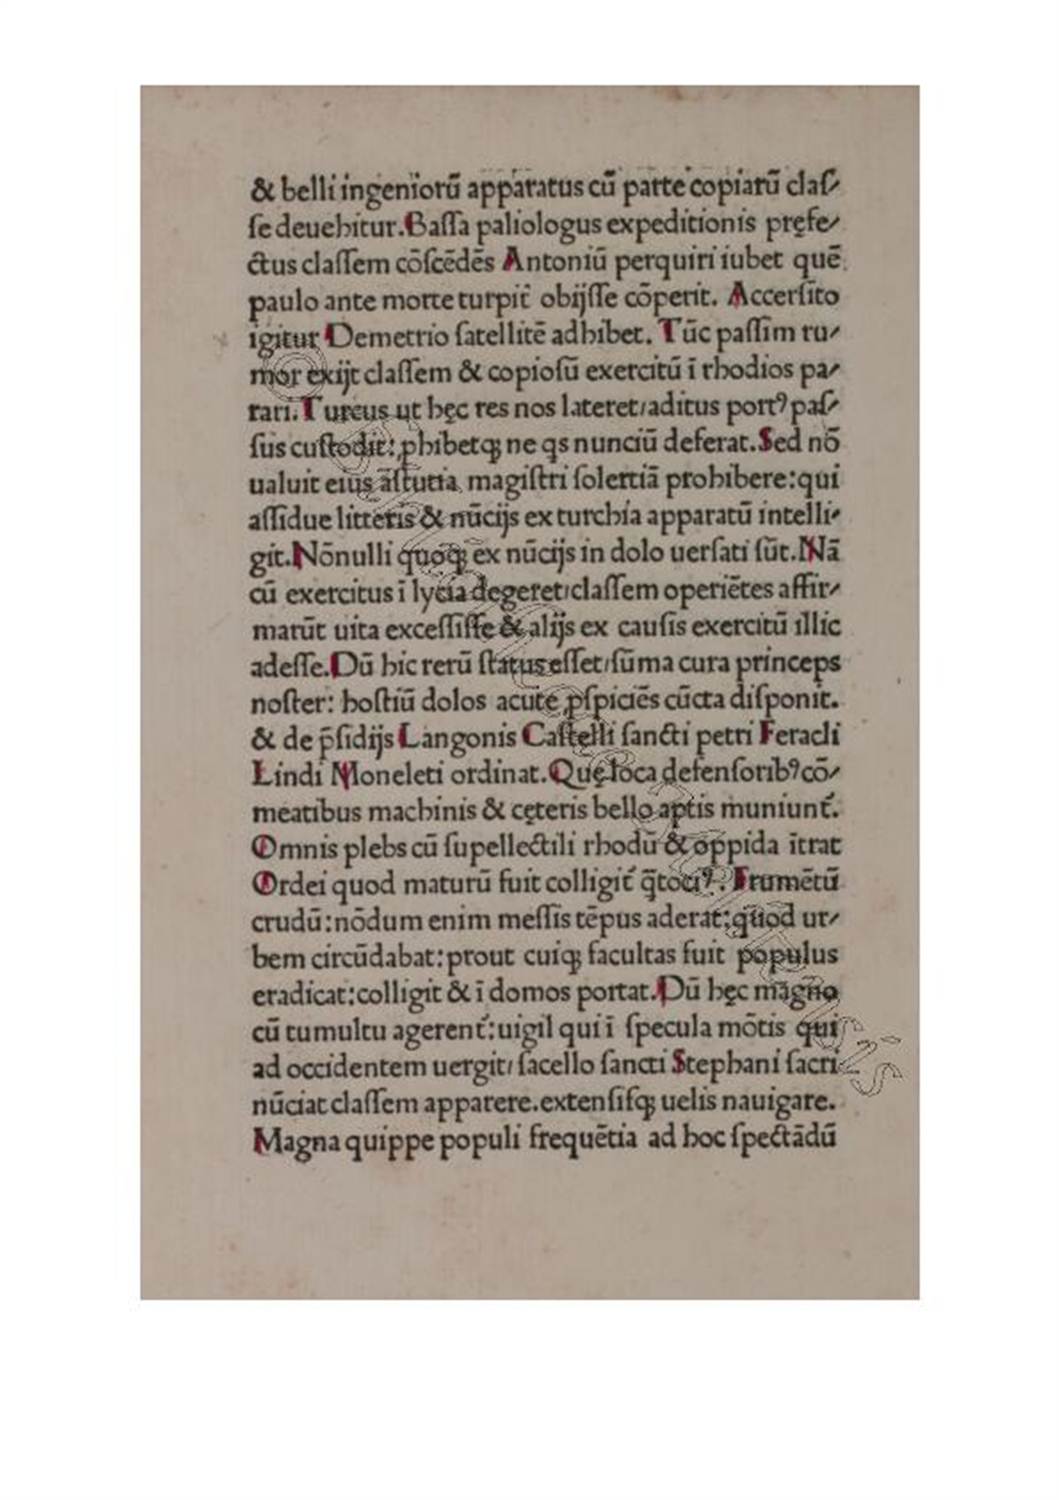 & belli ingeniorū apparatus cū parte copiarū claſ-
ſe deuehitur. Baſſa paliologus expeditionis pręfe-
ctus claſſem cōſcēdēs Antoniū perquiri iubet quē
paulo ante morte turpit̄ obijſſe cōperit. Accerſito
igitur Demetrio ſatellitē adhibet. Tūc paſſim ru-
mor exijt claſſem & copioſū exercitū ī rhodios pa-
rari. Turcus ut hęc res nos lateret/aditus portꝰ paſ-
ſus cuſtodit: ꝓhibetqꝫ ne qs nunciū deferat. Sed nō
ualuit eius aſtutia magiſtri ſolertiā prohibere: qui
aſſidue litteris & nūcijs ex turchia apparatū intelli-
git. Nōnulli quoqꝫ ex nūcijs in dolo uerſati ſūt. Nā
cū exercitus ī lycia degeret/claſſem operiētes affir-
marūt uita exceſſiſſe & alijs ex cauſis exercitū illic
adeſſe. Dū hic rerū ſtatus eſſet/ſūma cura princeps
noſter: hoſtiū dolos acute ꝑſpiciēs cūcta diſponit.
& de p̄ſidijs Langonis Caſtelli ſancti petri Feracli
Lindi Moneleti ordinat. Quę loca defenſoribꝰ cō-
meatibus machinis & cęteris bello aptis muniunt̄.
Omnis plebs cū ſupellectili rhodū & oppida ītrat
Ordei quod maturū fuit colligit̄ q̄tociꝰ. Frumētū
crudū: nōdum enim meſſis tēpus aderat: quod ur-
bem circūdabat: prout cuiqꝫ facultas fuit populus
eradicat: colligit & ī domos portat. Dū hęc magno
cū tumultu agerent̄: uigil qui ī ſpecula mōtis qui
ad occidentem uergit/ ſacello ſancti Stephani ſacri
nūciat claſſem apparere. extenſiſqꝫ uelis nauigare.
Magna quippe populi frequētia ad hoc ſpectādū